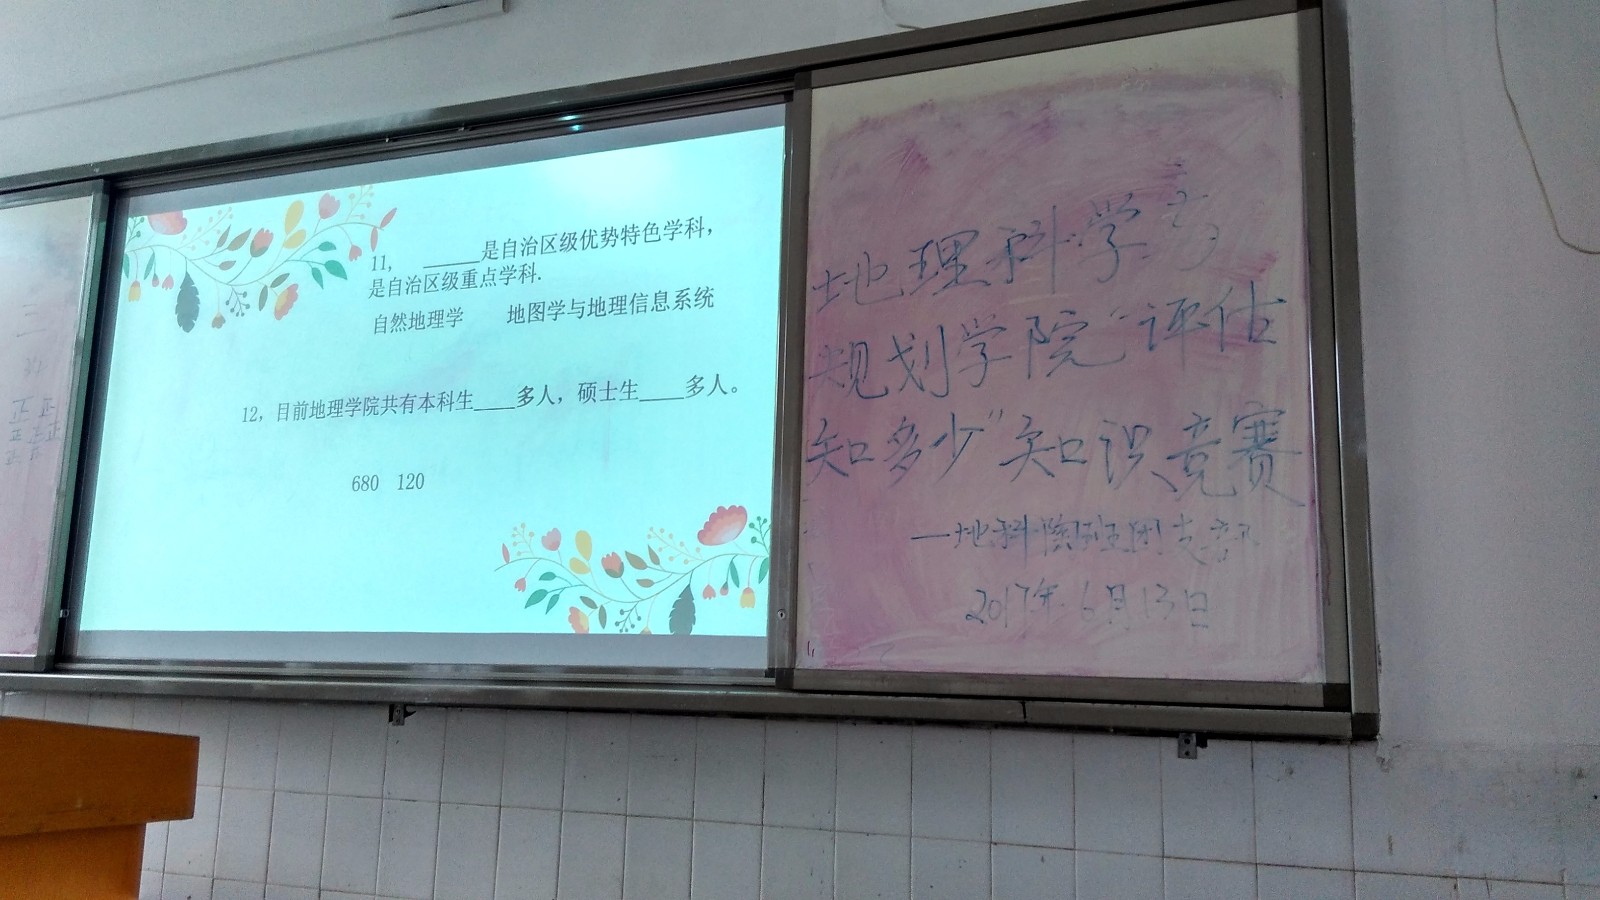 11, ______是自治区级优势特色学科,
是自治区级重点学科.
自然地理学 地图学与地理信息系统
12, 目前地理学院共有本科生____多人, 硕士生____多人。
680 120
地理科学与
规划学院“评估
知多少”知识竞赛
2017年6月13日
正正
正正
正正